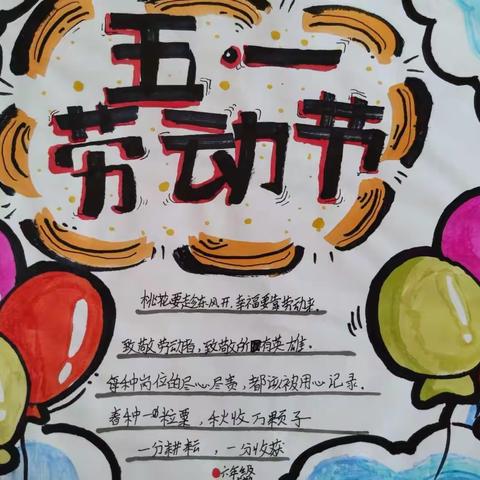 五·一
劳动节
桃花要趁东风开,幸福要靠劳动来.
致敬劳动者,致敬的所有英雄.
每种岗位的尽心尽责,都该被用心记录.
春种一粒粟,秋收万颗子
一分耕耘,一分收获
六年级